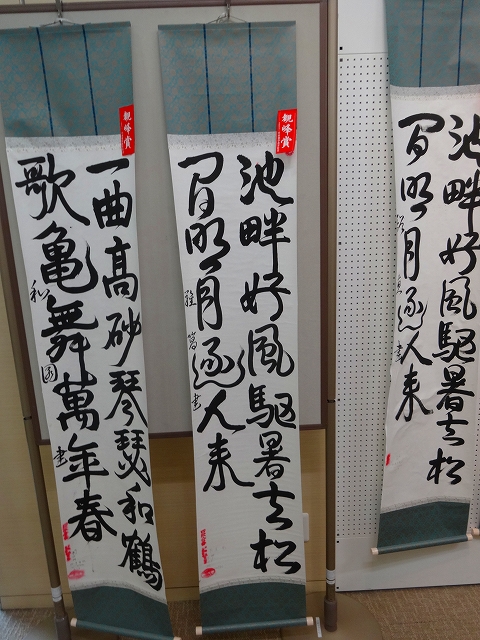 親峰賞
一曲高砂琴瑟和鶴
歌亀舞萬年春
和園書
親峰賞
池畔好風駆暑去松
間明月逐人来
書
池畔好風駆暑去松
間明月逐人来
書